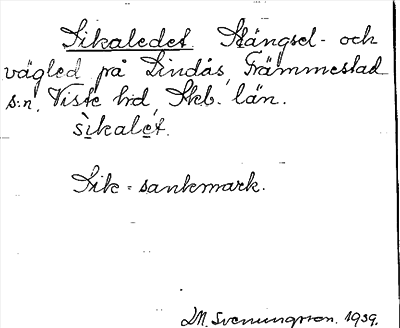 Sikaledet Stängsel- och
vägled på Lindås, Främmestad
s:n, Viste hd, Skb. län.
sikalet.
Sik = sankmark.
M. Svenungsson. 1939.